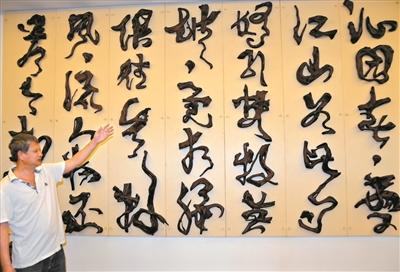 沁园春·雪
江山如此多
娇引无数英
雄竞折腰
俱往矣数
风流人物还
看今朝